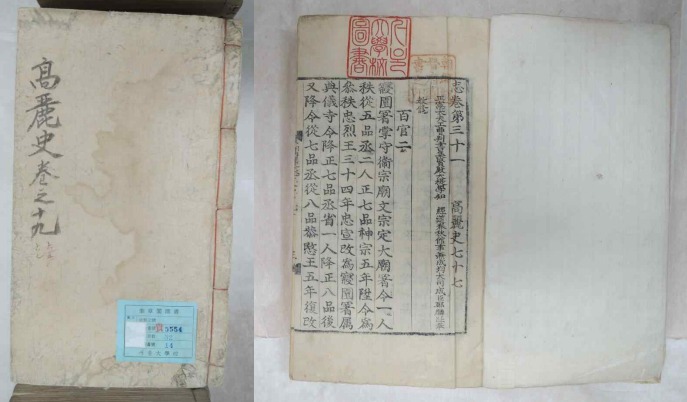 高麗史卷之十九
9554
14
서울大學校圖書
志卷第三十一 高麗史七十七
正憲大夫工曹判書集賢殿大提學知 經筵春秋館事兼成均大司成臣鄭麟趾奉
教修
百官二
寢園署掌守衛宗廟文宗定大廟署令一人
秩從五品丞二人正七品神宗五年陞令爲
叅秩忠烈王三十四年忠宣改爲寢園署屬
典儀寺令降正七品丞省一人降正八品後
又降令從七品丞從八品恭愍王五年復改